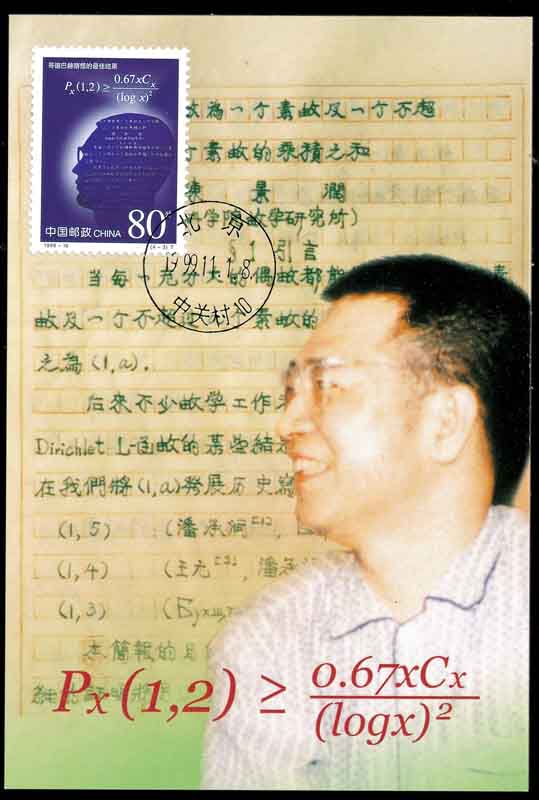 哥德巴赫猜想的最佳结果
Px(1,2) ≥ 0.67xCx / (log x)²
中国邮政 CHINA 80分
1999-16 (4-3) T
北京
1999.11.1.8
中关村-10
为一个素数及一个不超
个素数的乘積之和
陳景潤
学院数学研究所)
§1 引言
当每一充分大的偶数都能
素
数及一个不超过 个素数的
之為 (1,a).
后來不少数学工作
Dirichlet L-函数的某些結
在我們將(1,a)発展历史
(1,5) (潘承洞
(1,4) (王元 潘
(1,3)
本簡報的目
Px(1,2) ≥ 0.67xCx / (logx)²